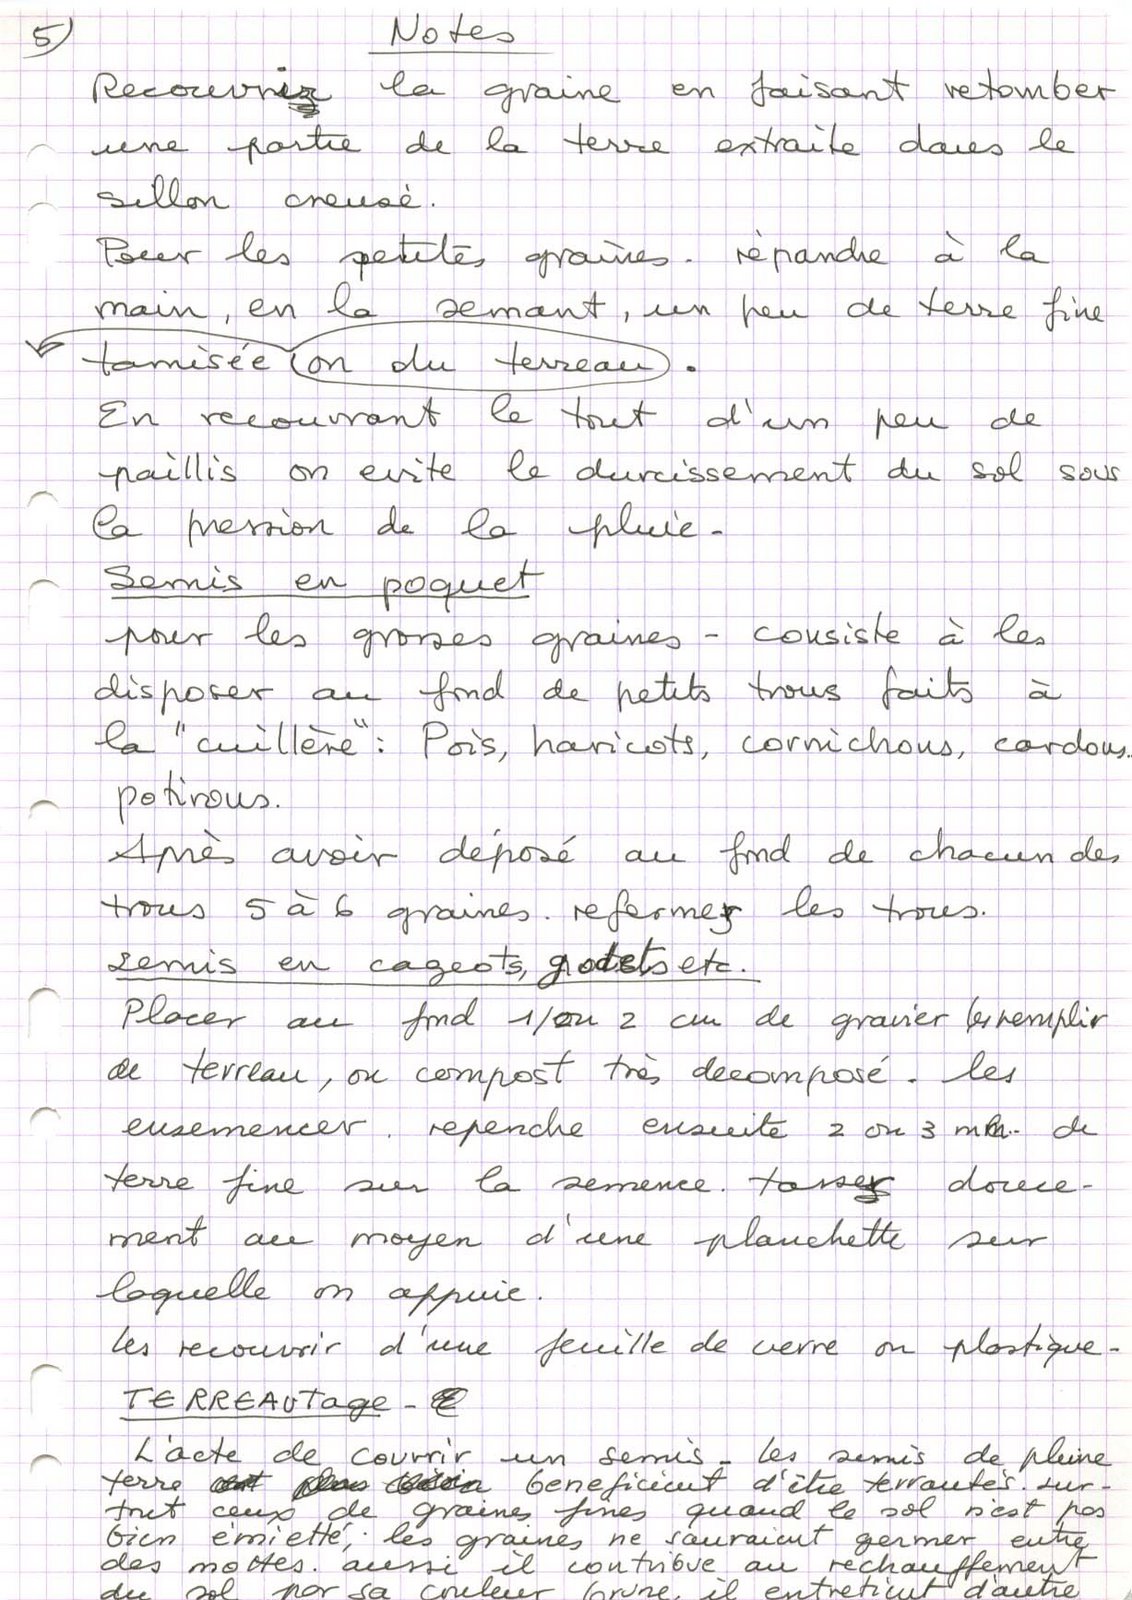 5)
Notes
Recouvrir la graine en faisant retomber
une partie de la terre extraite dans le
sillon creusé.
Pour les petites graines. répandre à la
main, en la semant, un peu de terre fine
tamisée (ou du terreau).
En recouvrant le tout d'un peu de
paillis on evite le durcissement du sol sous
la pression de la pluie -
Semis en poquet
pour les grosses graines - consiste à les
disposer au fond de petits trous faits à
la "cuillère": Pois, haricots, cornichons, cardons.
potirons.
Après avoir déposé au fond de chacun des
trous 5 à 6 graines. refermer les trous.
semis en cageots, godets etc.
Placer au fond 1/ou 2 cm de gravier les remplir
de terreau, ou compost très decomposé. les
ensemencer. repandre ensuite 2 ou 3 mm. de
terre fine sur la semence. tasser douce-
ment au moyen d'une planchette sur
laquelle on appuie.
les recouvrir d'une feuille de verre ou plastique -
TERREAUTage -
L'acte de couvrir un semis - les semis de pleine
terre beneficient d'être terrautés. sur-
tout ceux de graines fines quand le sol n'est pas
bien émietté; les graines ne sauraient germer entre
des mottes. aussi il contribue au rechauffement
du sol par sa couleur brune. il entretient d'autre